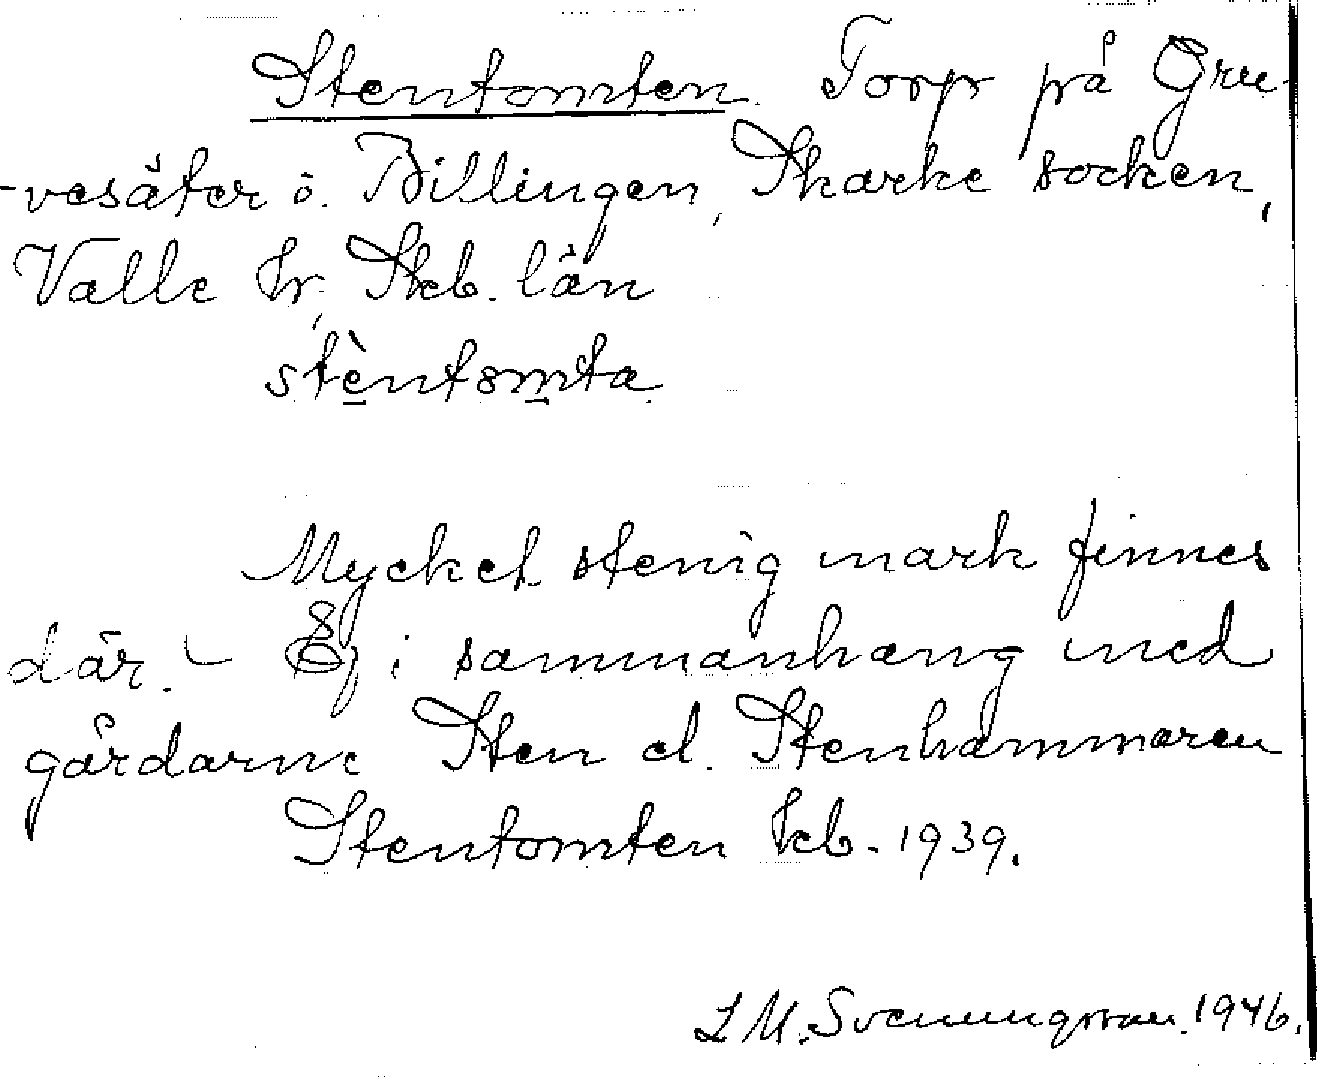 Stentomten. Torp på Gru-
-vesäter ö. Billingen, Skarke socken,
Valle hr, Skb. län
stèntomta
Mycket stenig mark finnes
där. - Ej i sammanhang med
gårdarne Sten el. Stenhammaren
Stentomten kb. 1939.
L M. Svenungsson. 1946.